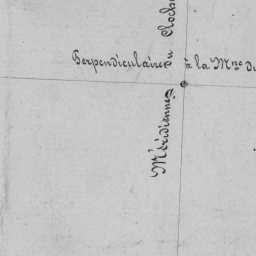 Perpendiculaire à la Mne du
Méridienne du Cloch